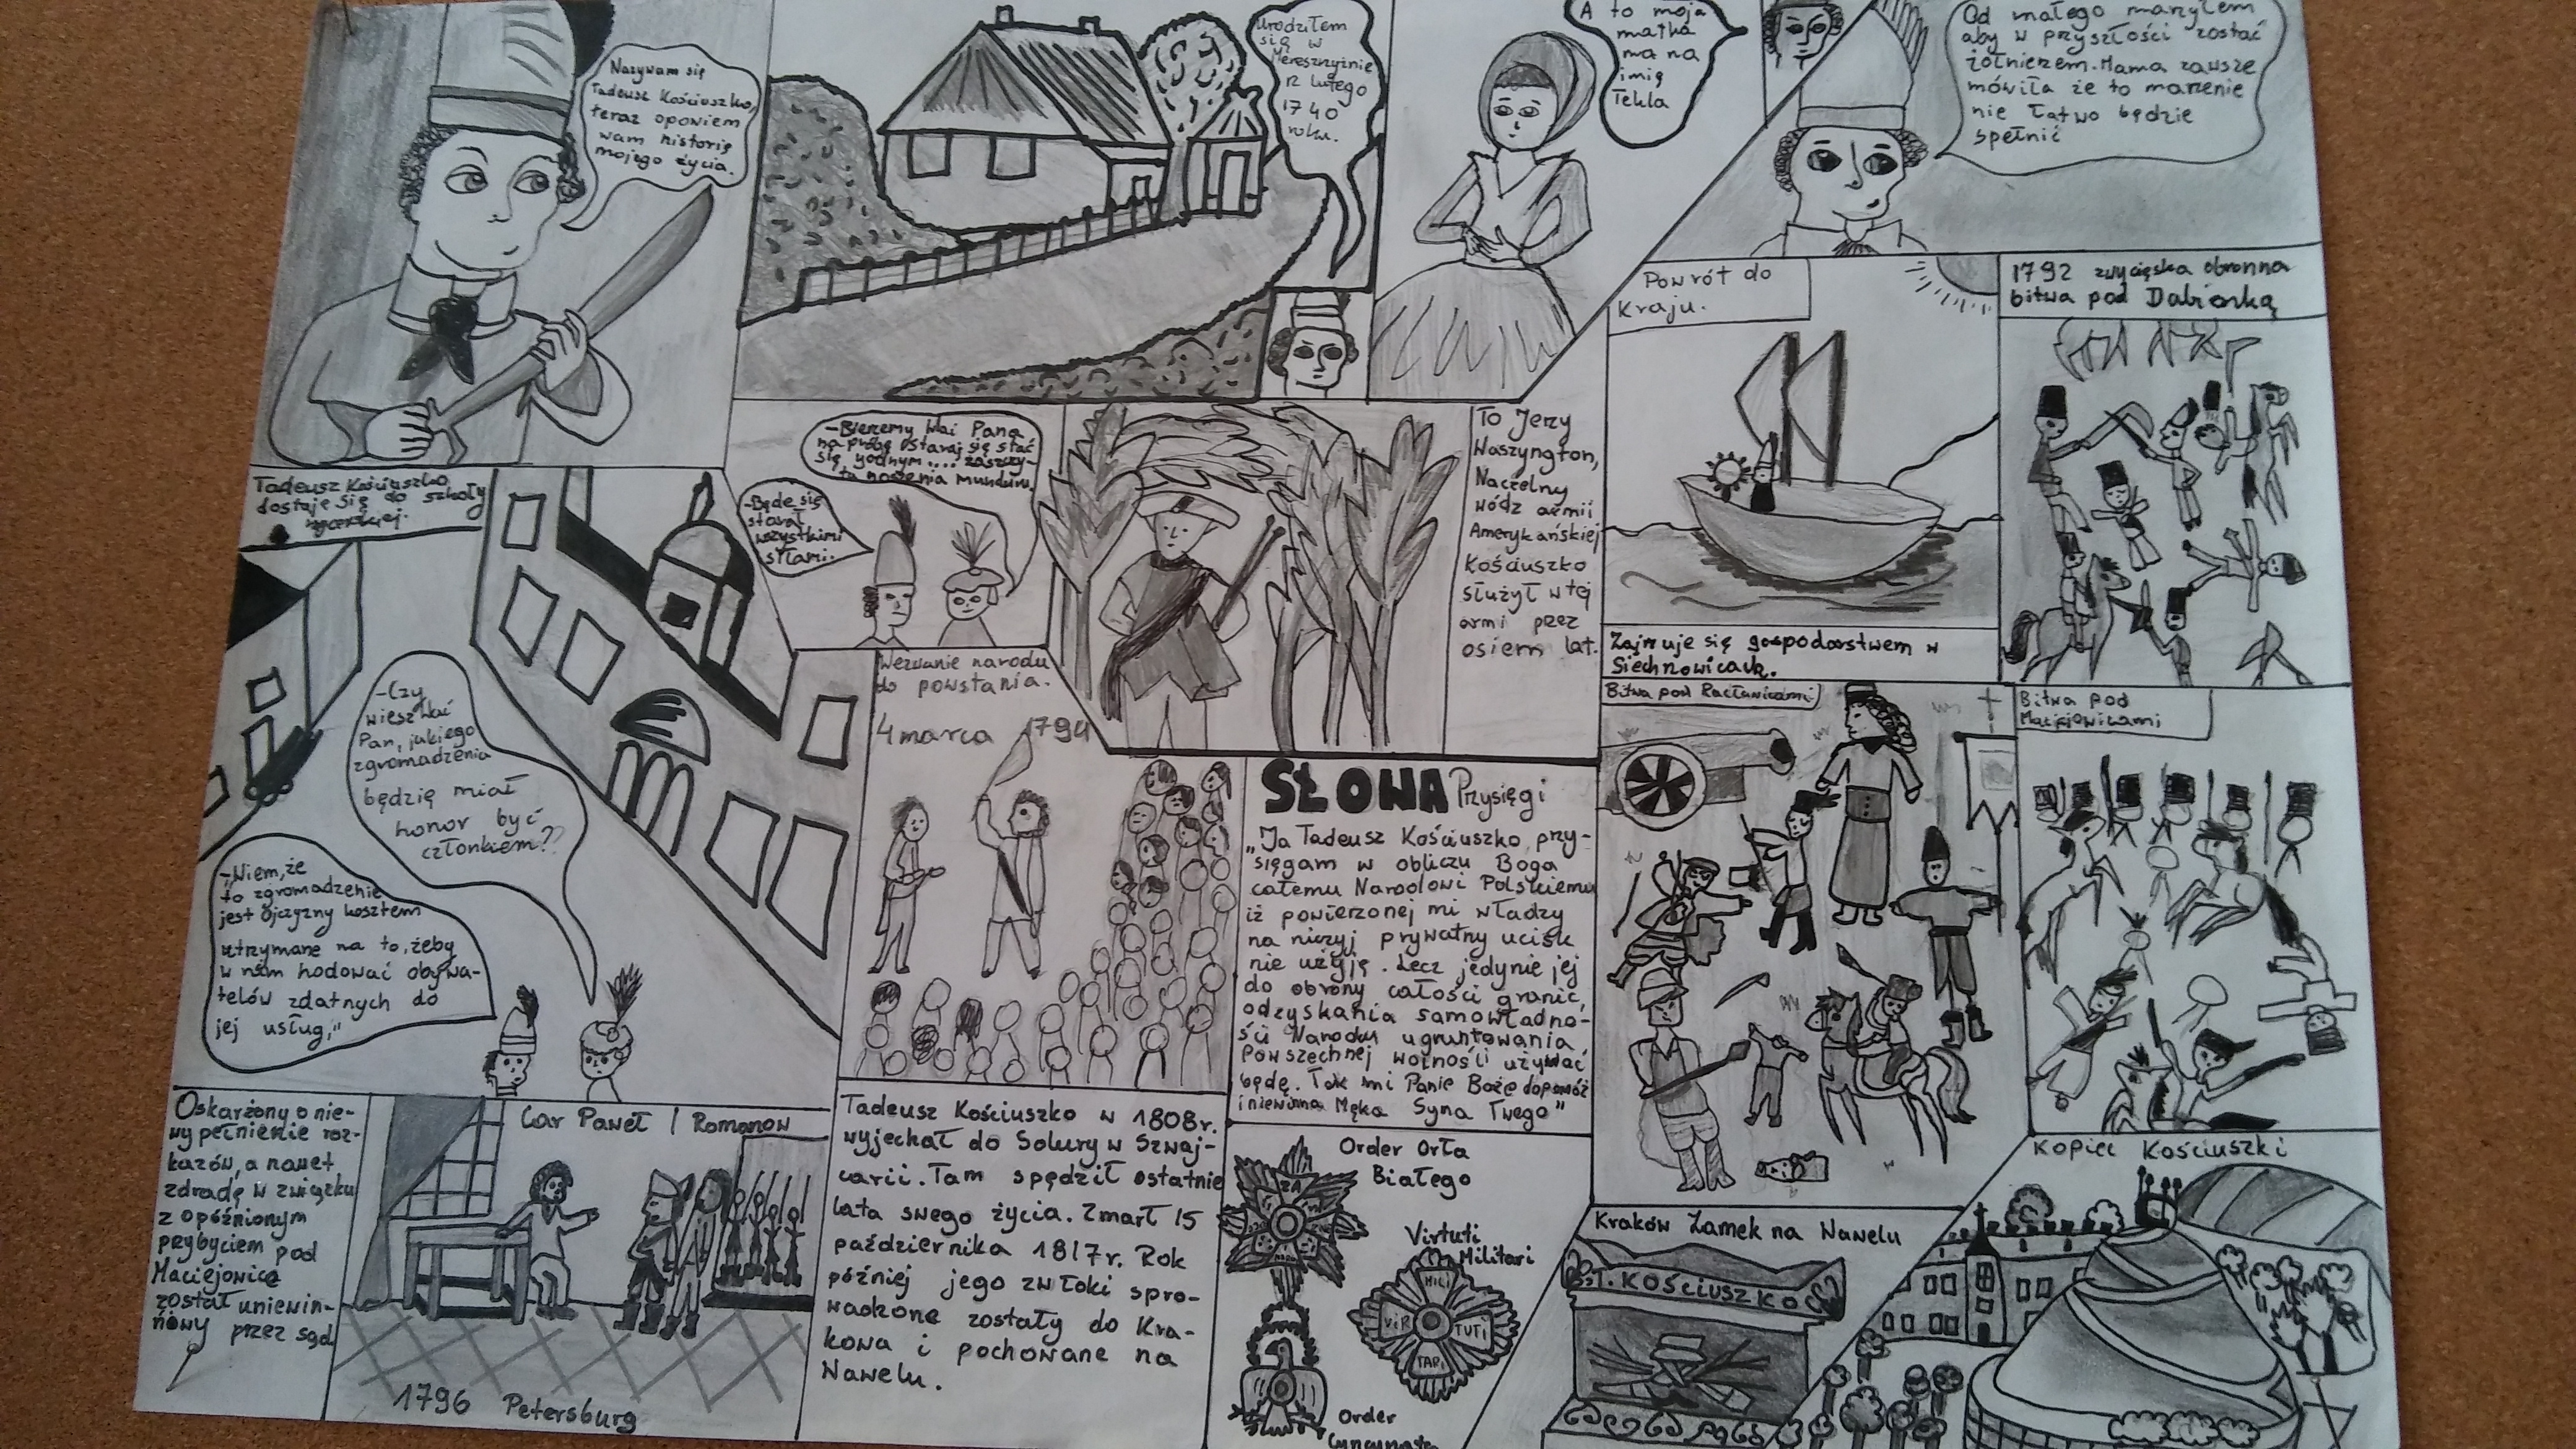 Nazywam się
Tadeusz Kościuszko,
teraz opowiem
wam historię
mojego życia.
Urodziłem
się w
Mereszczyźnie
12 lutego
1740
roku.
A to moja
matka
ma na
imię
Tekla
Od małego marzyłem
aby w przyszłości zostać
żołnierzem. Mama zawsze
mówiła że to marzenie
nie łatwo będzie
spełnić
Tadeusz Kościuszko
dostaje się do szkoły
-Czy
wiesz
Pan, jakiego
zgromadzenia
będzię miał
honor być
członkiem??
-Wiem, że
to zgromadzenie
jest ojczyzny kosztem
utrzymane na to, żeby
w nim hodować obywa-
telów zdatnych do
jej usług,"
-Bierzemy Pana
na próbę staraj się stać
się godnym.... zaszczy-
tu noszenia munduru.
-Będe się
starał
wszystkimi
siłami.
To Jerzy
Waszyngton,
Naczelny
wódz armii
Amerykańskiej
Kościuszko
służył w tej
armi przez
osiem lat.
Powrót do
kraju.
1792 zwycięska obronna
bitwa pod Dubienką
Zajmuje się gospodarstwem w
Siechnowicach.
Wezwanie narodu
do powstania.
4 marca 1794
SŁOWA Przysięgi
„Ja Tadeusz Kościuszko, przy-
sięgam w obliczu Boga
całemu Narodowi Polskiemu
iż powierzonej mi władzy
na niczyj prywatny ucisk
nie użyję. Lecz jedynie jej
do obrony całości granic,
odzyskania samowładno-
ści Narodu ugruntowania
Powszechnej wolności używać
będę. Tak mi Panie Boże dopomóż
i niewinna Męka Syna Twego"
Bitwa pod Racławicami
Bitwa pod
Maciejowicami
Oskarżony o nie-
wypełnienie roz-
kazów, a nawet
zdradę w związku
z opóźnionym
przybyciem pod
Maciejowice
został uniewin-
niony przez sąd
Car Paweł I Romanow
1796 Petersburg
Tadeusz Kościuszko w 1808r.
wyjechał do Solury w Szwaj-
carii. Tam spędził ostatnie
lata swego życia. Zmarł 15
października 1817r. Rok
później jego zwłoki spro-
wadzone zostały do Kra-
kowa i pochowane na
Wawelu.
Order Orła
Białego
Virtuti
Militari
MILI
VIR
TUTI
TARI
Order
Cyncynata
Kraków Zamek na Wawelu
T. KOŚCIUSZKO
Kopiec Kościuszki